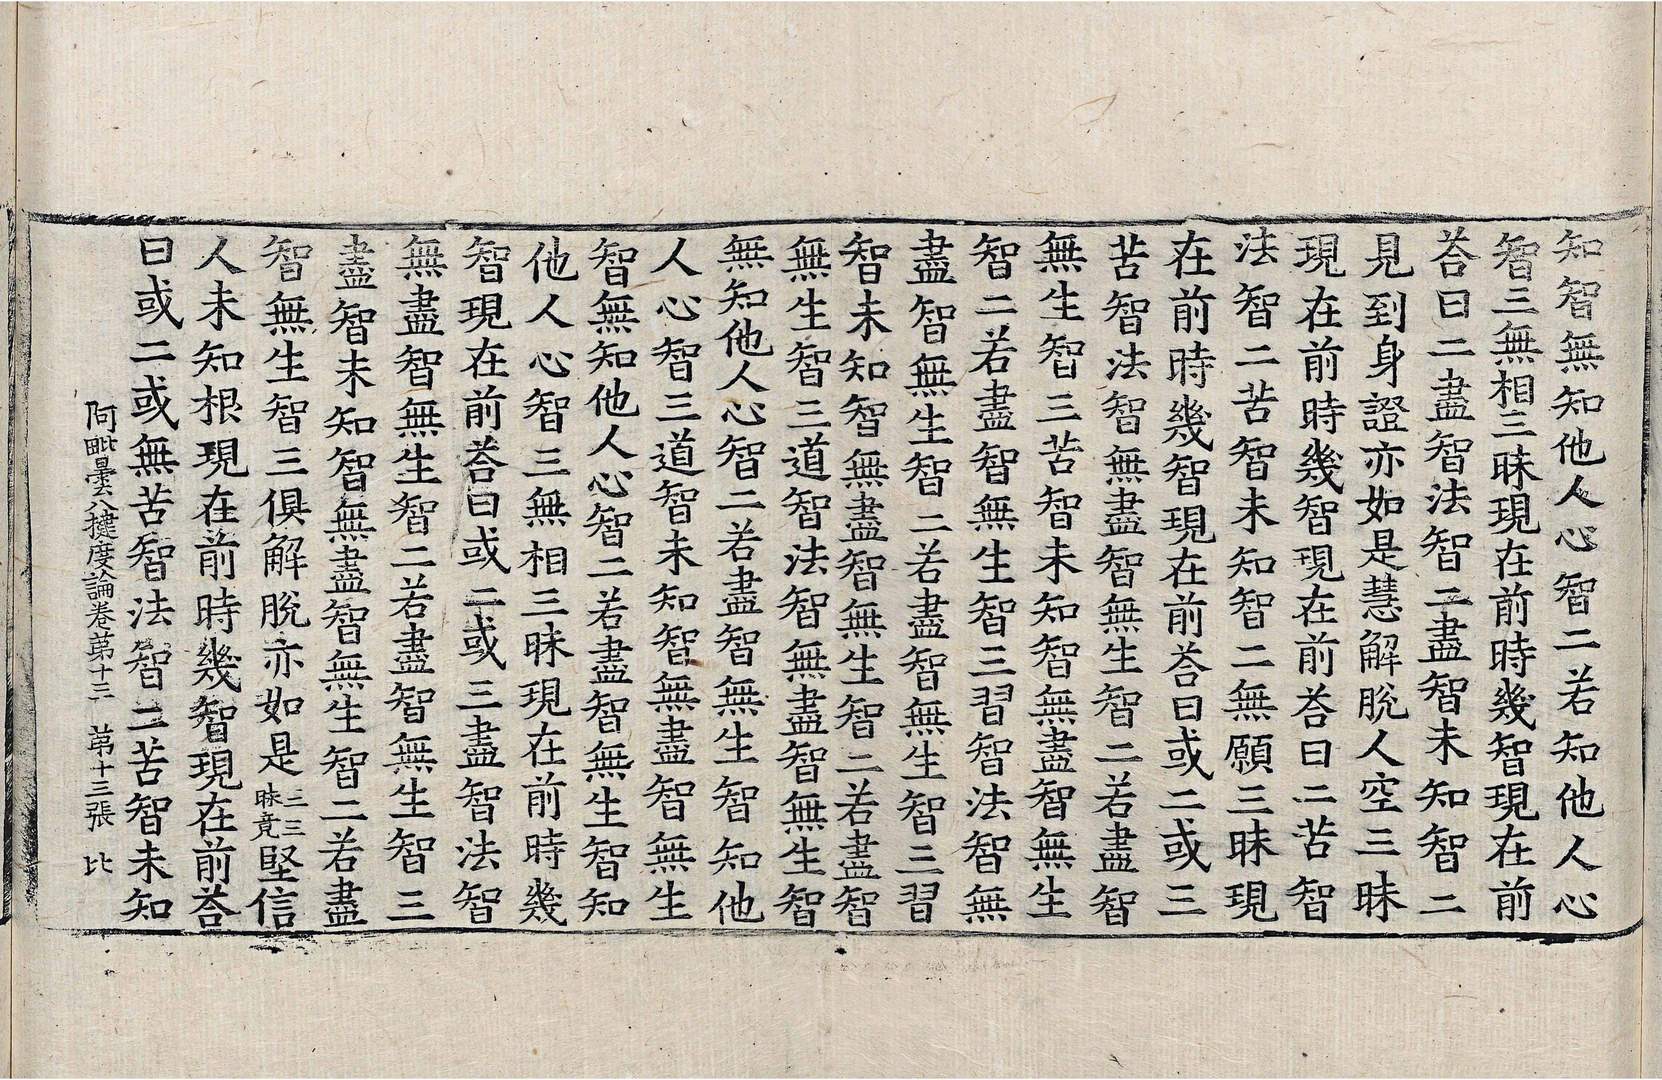 知智無知他人心智二若知他人心
智三無相三昧現在前時幾智現在前
荅曰二盡智法智二盡智未知智二
見到身證亦如是慧解脫人空三昧
現在前時幾智現在前荅曰二苦智
法智二苦智未知智二無願三昧現
在前時幾智現在前荅曰或二或三
苦智法智無盡智無生智二若盡智
無生智三苦智未知智無盡智無生
智二若盡智無生智三習智法智無
盡智無生智二若盡智無生智三習
智未知智無盡智無生智二若盡智
無生智三道智法智無盡智無生智
無知他人心智二若盡智無生智知他
人心智三道智未知智無盡智無生
智無知他人心智二若盡智無生智知
他人心智三無相三昧現在前時幾
智現在前荅曰或二或三盡智法智
無盡智無生智二若盡智無生智三
盡智未知智無盡智無生智二若盡
智無生智三俱解脫亦如是三三昧竟堅信
人未知根現在前時幾智現在前荅
曰或二或無苦智法智二苦智未知
阿毗曇八揵度論卷苐十三 苐十三張 比